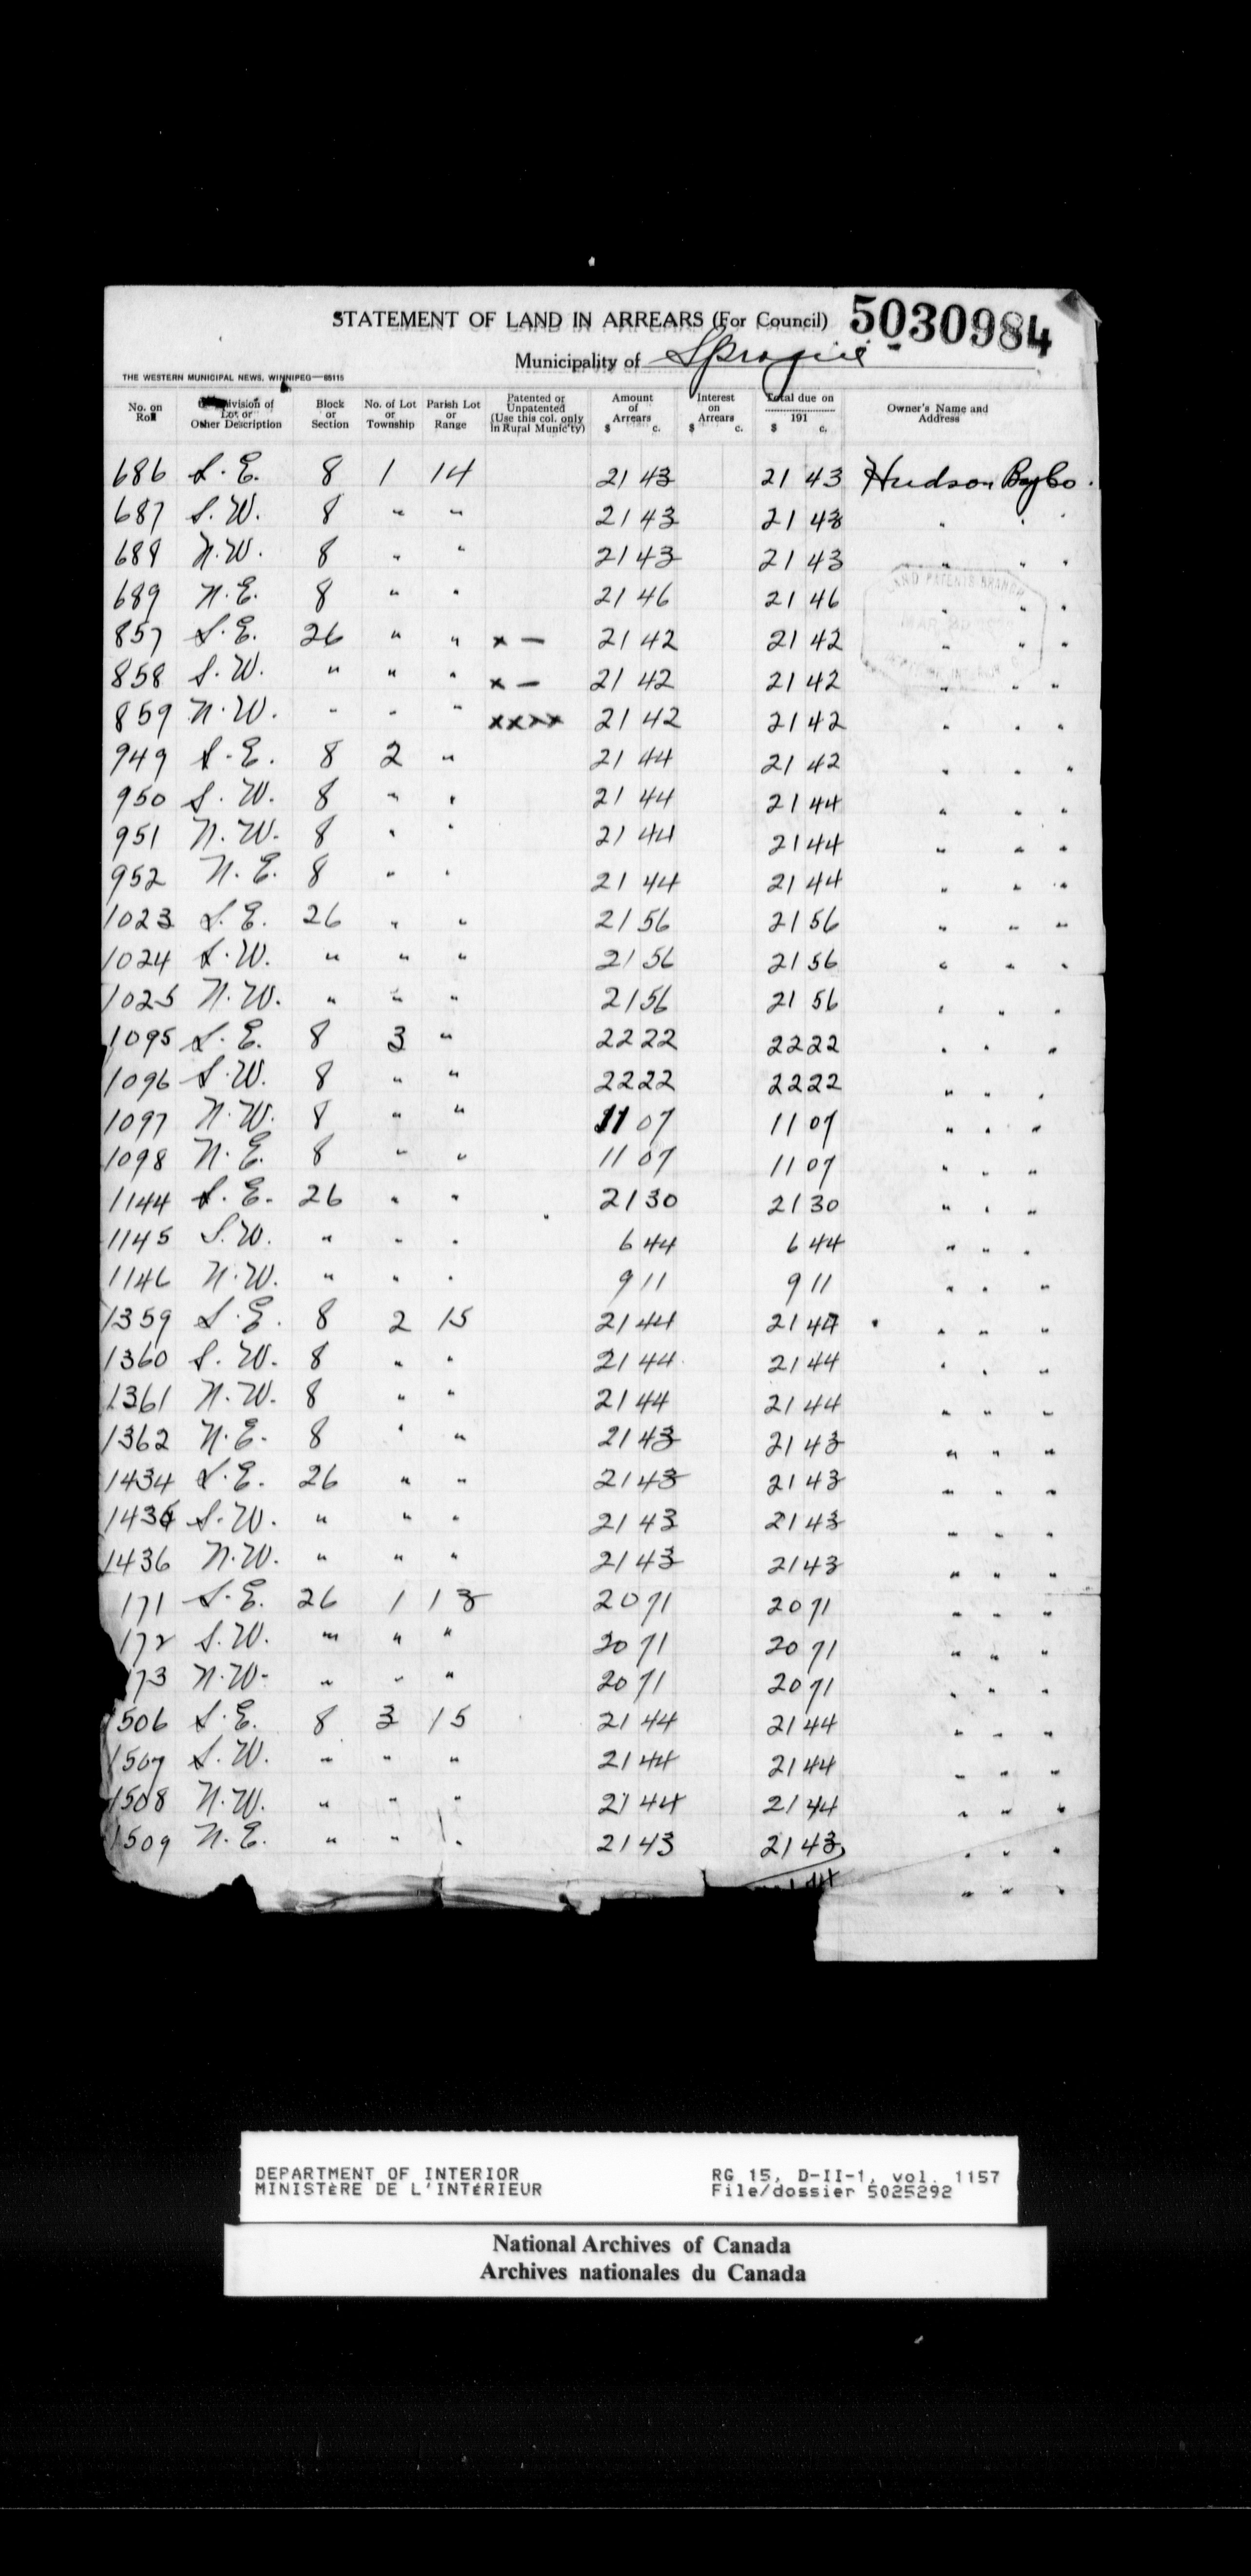 STATEMENT OF LAND IN ARREARS (For Council) 5030984
Municipality of Sprague
THE WESTERN MUNICIPAL NEWS, WINNIPEG—65115
No. on Roll | Division of Lot or Other Description | Block or Section | No. of Lot or Township | Parish Lot or Range | Patented or Unpatented (Use this col. only in Rural Munic'ty) | Amount of Arrears $ c. | Interest on Arrears $ c. | Total due on 191 $ c. | Owner's Name and Address
686 S.E. 8 1 14 21 43 21 43 Hudson Bay Co.
687 S.W. 8 " " 21 43 21 43 " " "
688 N.W. 8 " " 21 43 21 43 " " "
689 N.E. 8 " " 21 46 21 46 " " "
857 S.E. 26 " " x — 21 42 21 42 " " "
858 S.W. " " " x — 21 42 21 42 " " "
859 N.W. " " " xxxx 21 42 21 42 " " "
949 S.E. 8 2 " 21 44 21 42 " " "
950 S.W. 8 " " 21 44 21 44 " " "
951 N.W. 8 " " 21 44 21 44 " " "
952 N.E. 8 " " 21 44 21 44 " " "
1023 S.E. 26 " " 21 56 21 56 " " "
1024 S.W. " " " 21 56 21 56 " " "
1025 N.W. " " " 21 56 21 56 " " "
1095 S.E. 8 3 " 22 22 22 22 " " "
1096 S.W. 8 " " 22 22 22 22 " " "
1097 N.W. 8 " " 11 07 11 07 " " "
1098 N.E. 8 " " 11 07 11 07 " " "
1144 S.E. 26 " " 21 30 21 30 " " "
1145 S.W. " " " 6 44 6 44 " " "
1146 N.W. " " " 9 11 9 11 " " "
1359 S.E. 8 2 15 21 44 21 44 " " "
1360 S.W. 8 " " 21 44 21 44 " " "
1361 N.W. 8 " " 21 44 21 44 " " "
1362 N.E. 8 " " 21 43 21 43 " " "
1434 S.E. 26 " " 21 43 21 43 " " "
1435 S.W. " " " 21 43 21 43 " " "
1436 N.W. " " " 21 43 21 43 " " "
171 S.E. 26 1 13 20 71 20 71 " " "
172 S.W. " " " 20 71 20 71 " " "
173 N.W. " " " 20 71 20 71 " " "
1506 S.E. 8 3 15 21 44 21 44 " " "
1507 S.W. " " " 21 44 21 44 " " "
1508 N.W. " " " 21 44 21 44 " " "
1509 N.E. " " " 21 43 21 43 " " "
" " "
LAND PATENTS BRANCH
MAR 30
DEPARTMENT OF INTERIOR RG 15, D-II-1, vol. 1157
MINISTÈRE DE L'INTÉRIEUR File/dossier 5025292
National Archives of Canada
Archives nationales du Canada